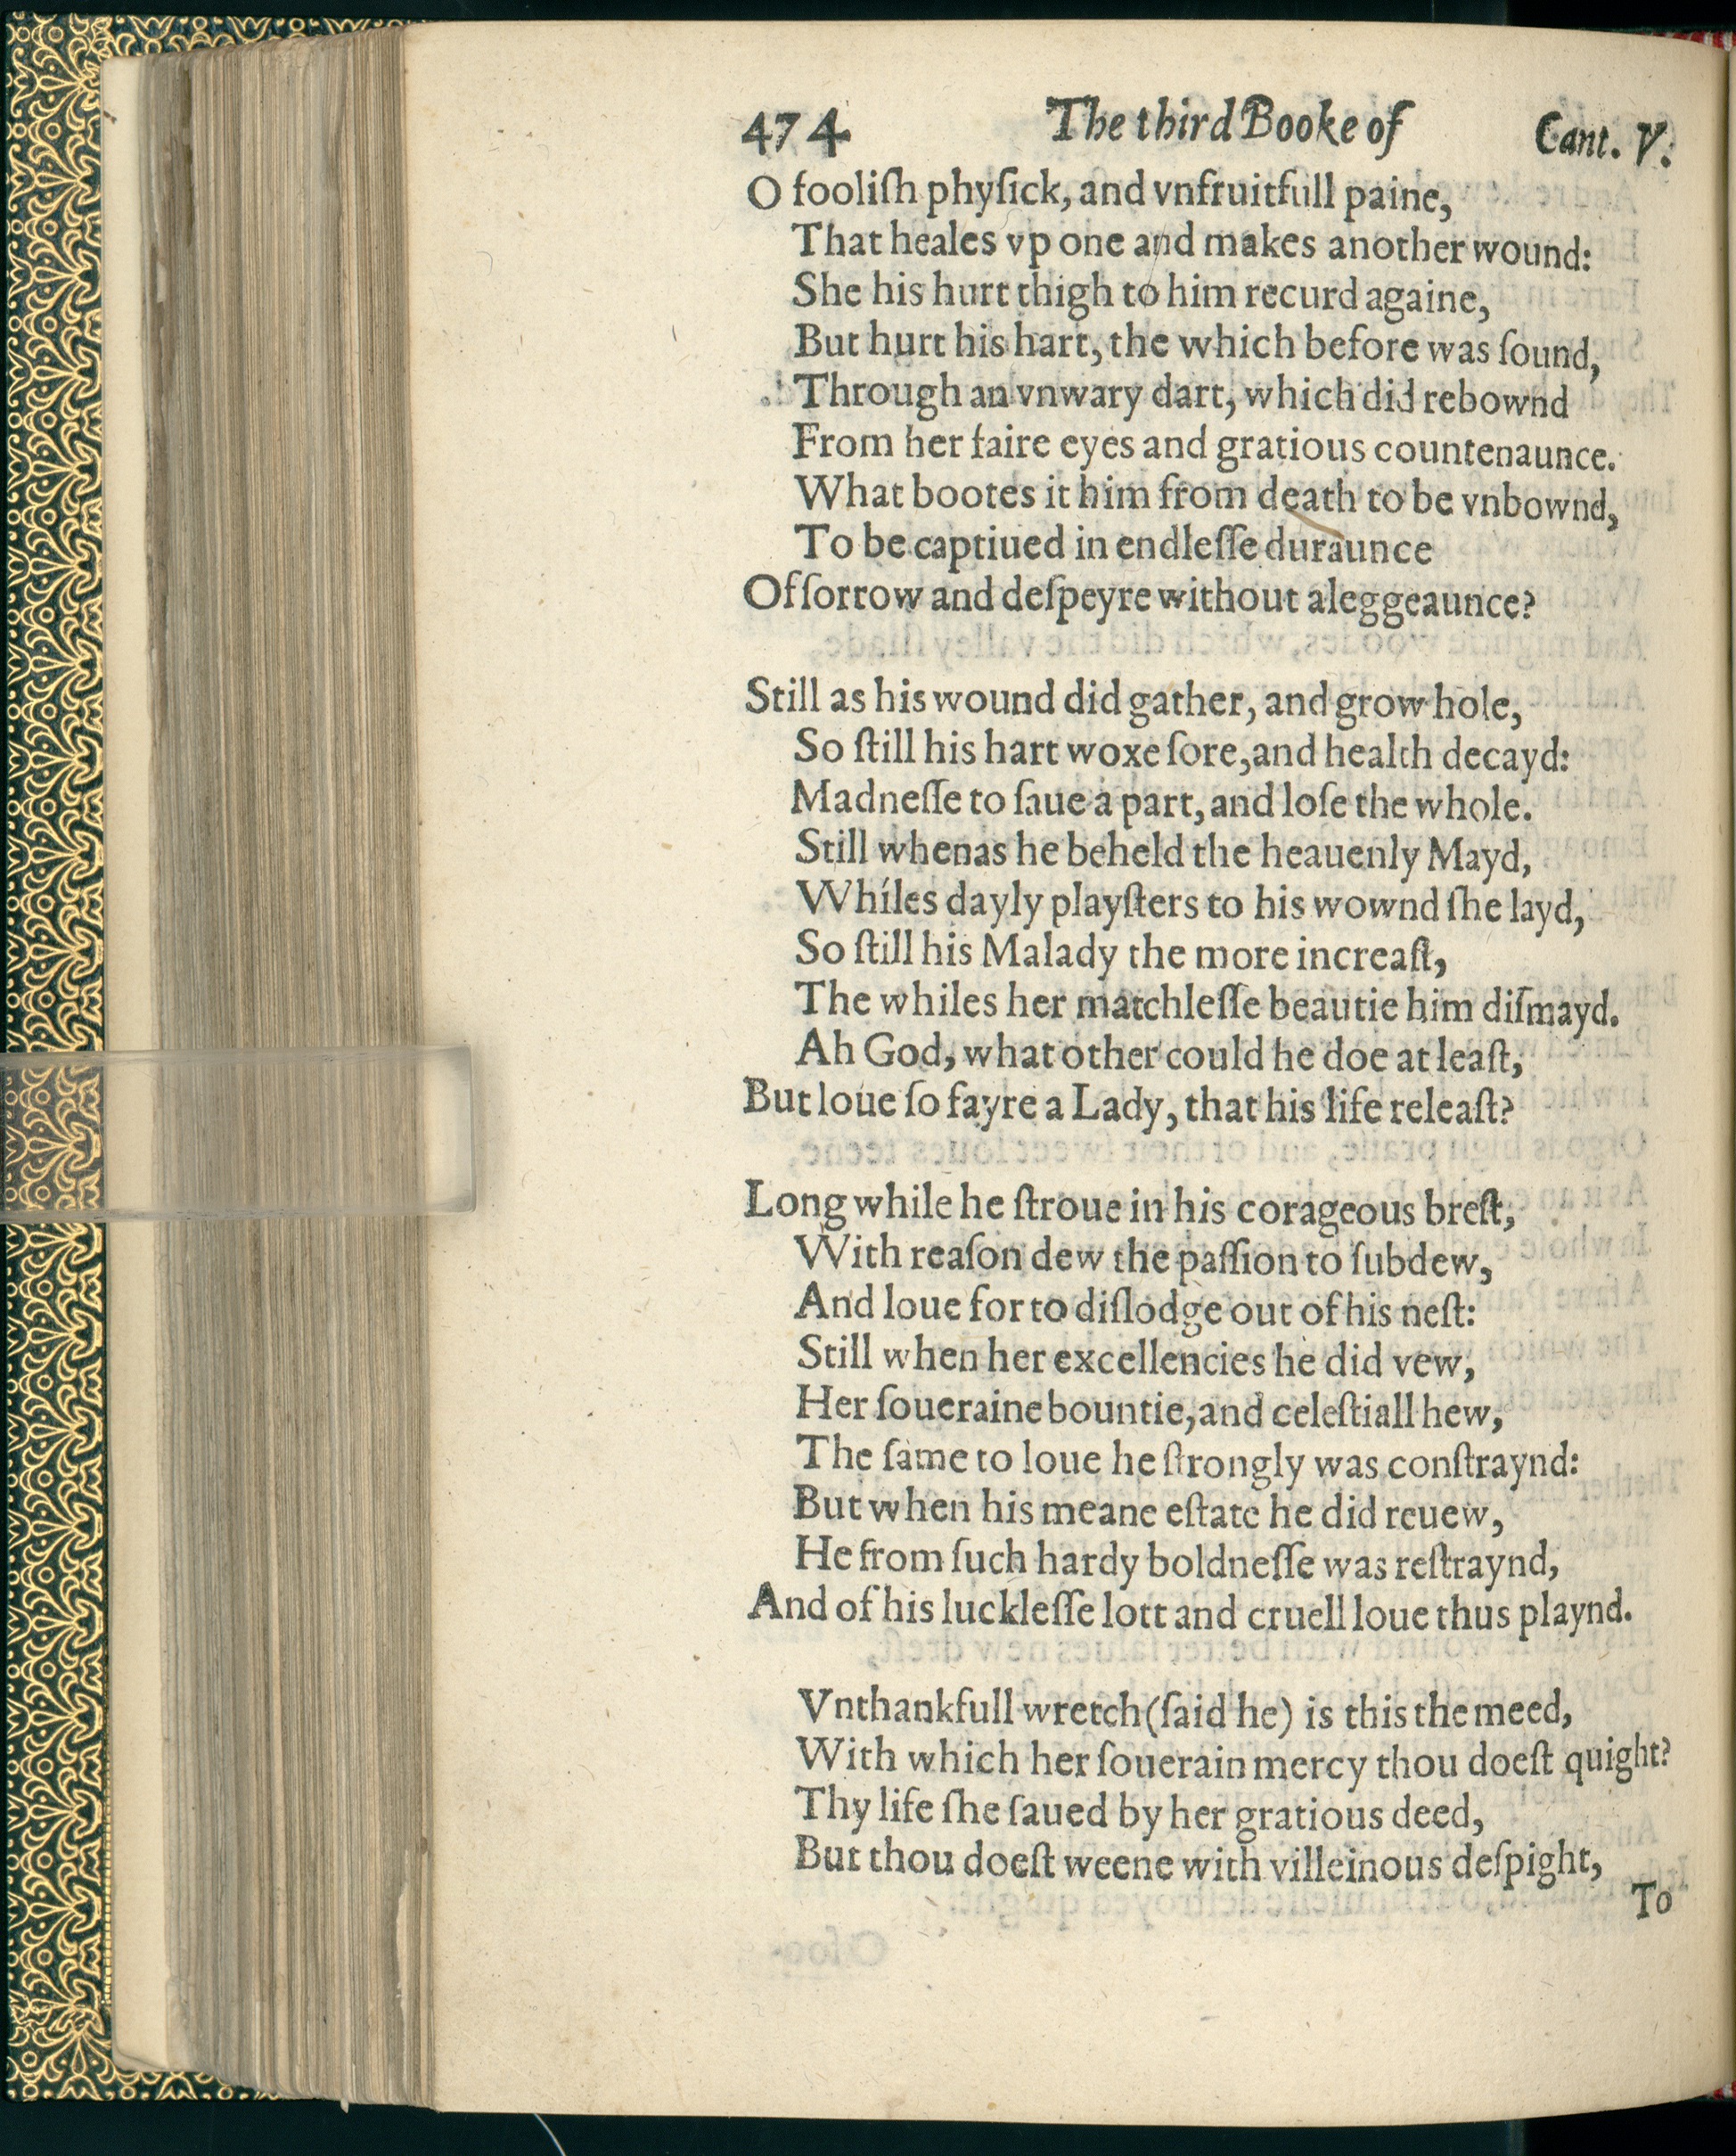 474 The third Booke of Cant. V.
O fooliſh phyſick, and vnfruitfull paine,
That heales vp one and makes another wound:
She his hurt thigh to him recurd againe,
But hurt his hart, the which before was ſound,
Through an vnwary dart, which did rebownd
From her faire eyes and gratious countenaunce.
What bootes it him from death to be vnbownd,
To be captiued in endleſſe duraunce
Of ſorrow and deſpeyre without aleggeaunce?
Still as his wound did gather, and grow hole,
So ſtill his hart woxe ſore, and health decayd:
Madneſſe to ſaue a part, and loſe the whole.
Still whenas he beheld the heauenly Mayd,
Whiles dayly playſters to his wownd ſhe layd,
So ſtill his Malady the more increaſt,
The whiles her matchleſſe beautie him diſmayd.
Ah God, what other could he doe at leaſt,
But loue ſo fayre a Lady, that his life releaſt?
Long while he ſtroue in his corageous breſt,
With reaſon dew the paſſion to ſubdew,
And loue for to diſlodge out of his neſt:
Still when her excellencies he did vew,
Her ſoueraine bountie, and celeſtiall hew,
The ſame to loue he ſtrongly was conſtraynd:
But when his meane eſtate he did reuew,
He from ſuch hardy boldneſſe was reſtraynd,
And of his luckleſſe lott and cruell loue thus playnd.
Vnthankfull wretch (ſaid he) is this the meed,
With which her ſouerain mercy thou doeſt quight?
Thy life ſhe ſaued by her gratious deed,
But thou doeſt weene with villeinous deſpight,
To